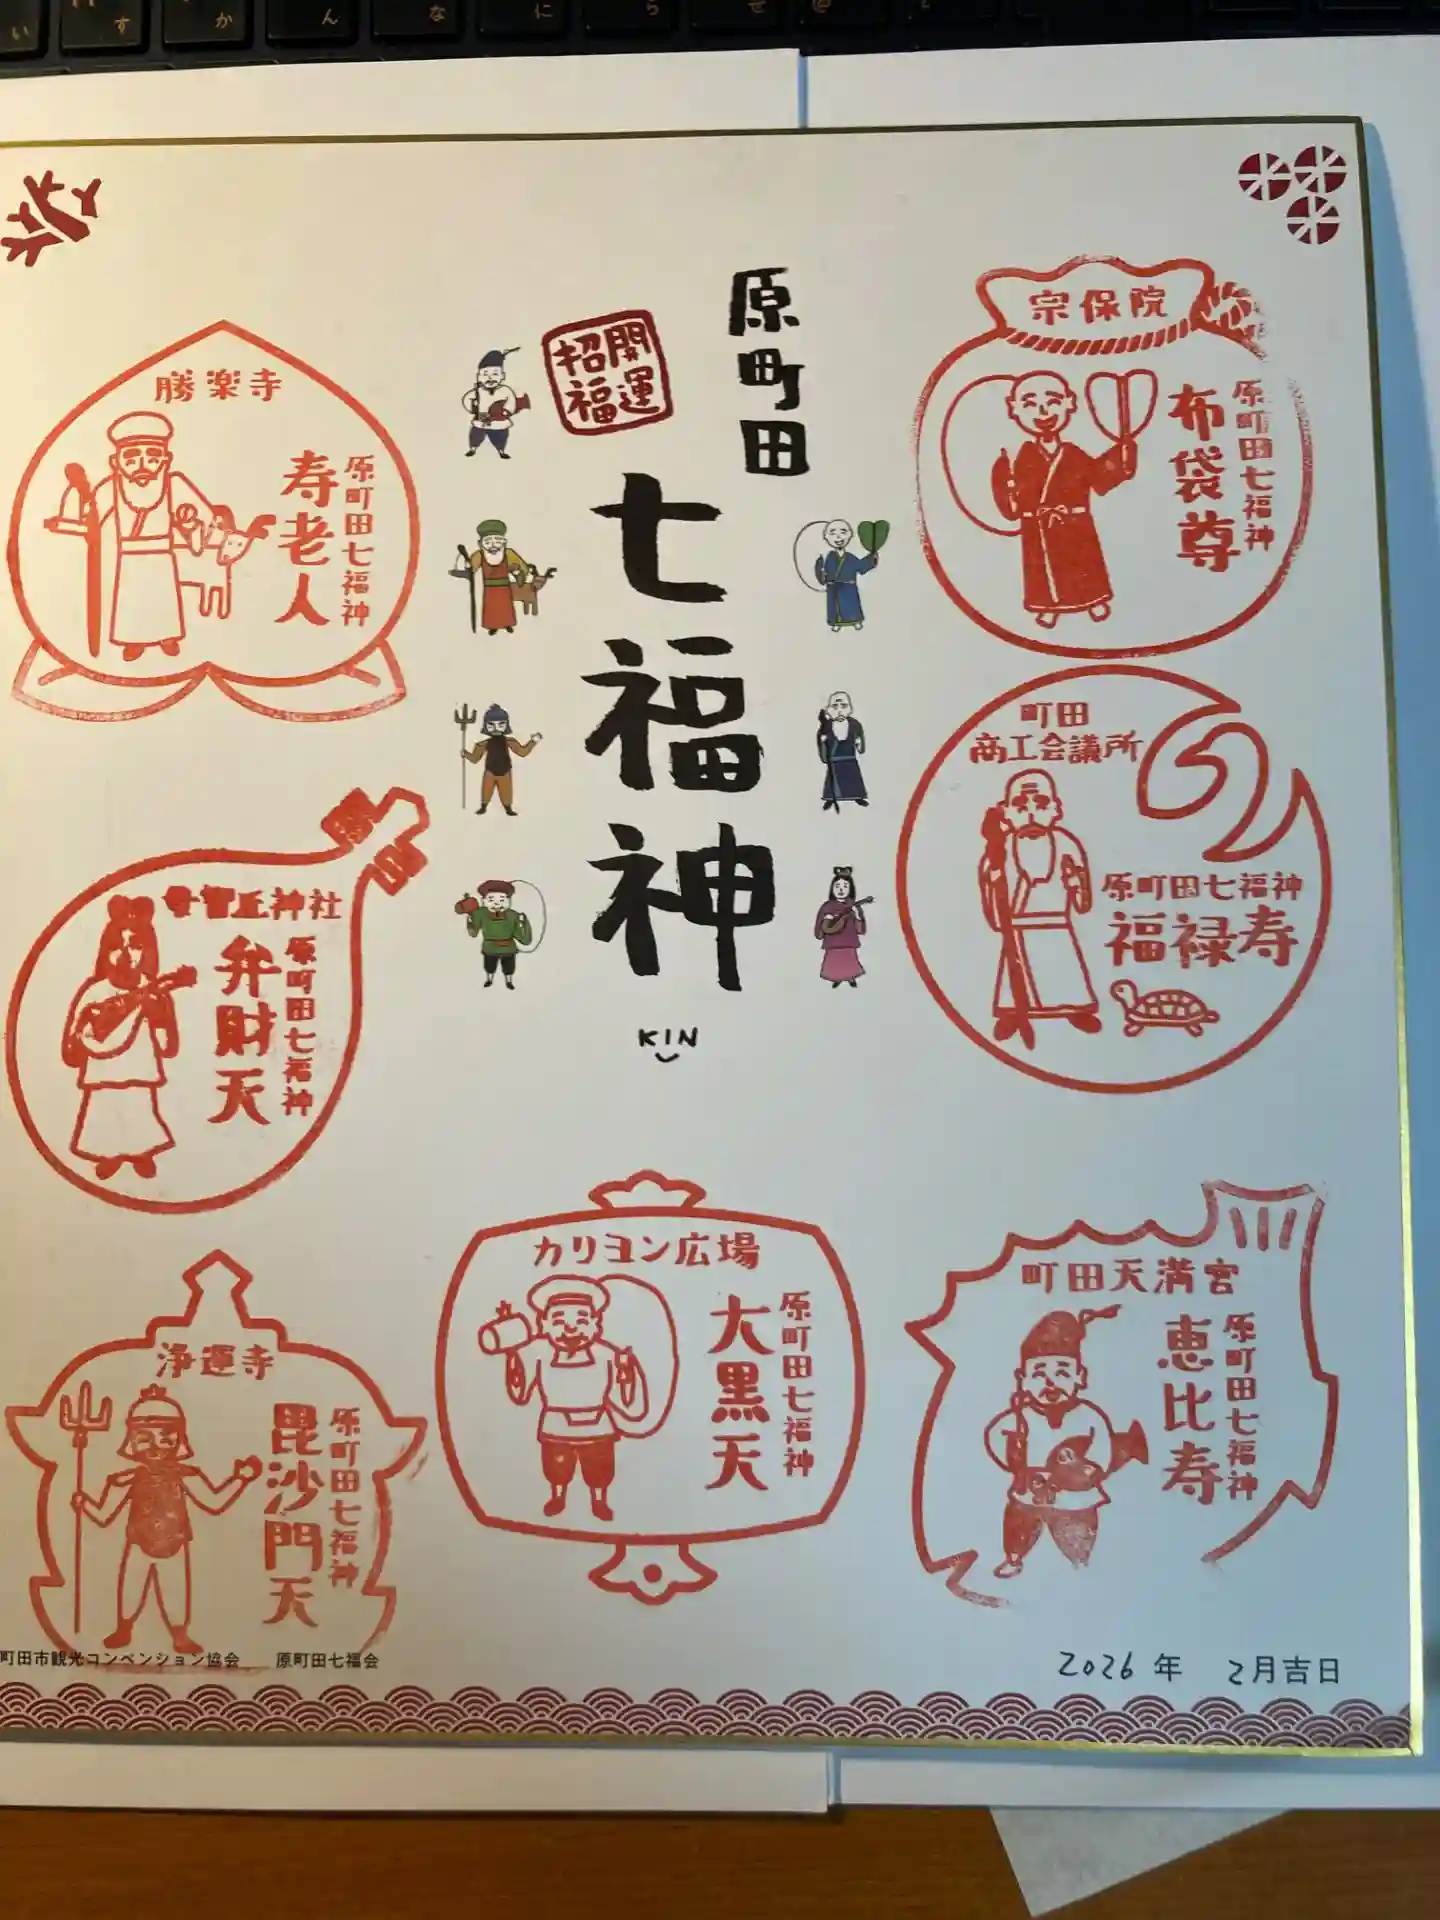 原町田
七福神
開運
招福
KIN
宗保院
原町田七福神
布袋尊
町田
商工会議所
原町田七福神
福禄寿
町田天満宮
原町田七福神
恵比寿
カリヨン広場
原町田七福神
大黒天
勝楽寺
原町田七福神
寿老人
母智丘神社
原町田七福神
弁財天
浄運寺
原町田七福神
毘沙門天
町田市観光コンベンション協会 原町田七福会
2026年 2月吉日
い
す
か
ん
な
に
ら
せ